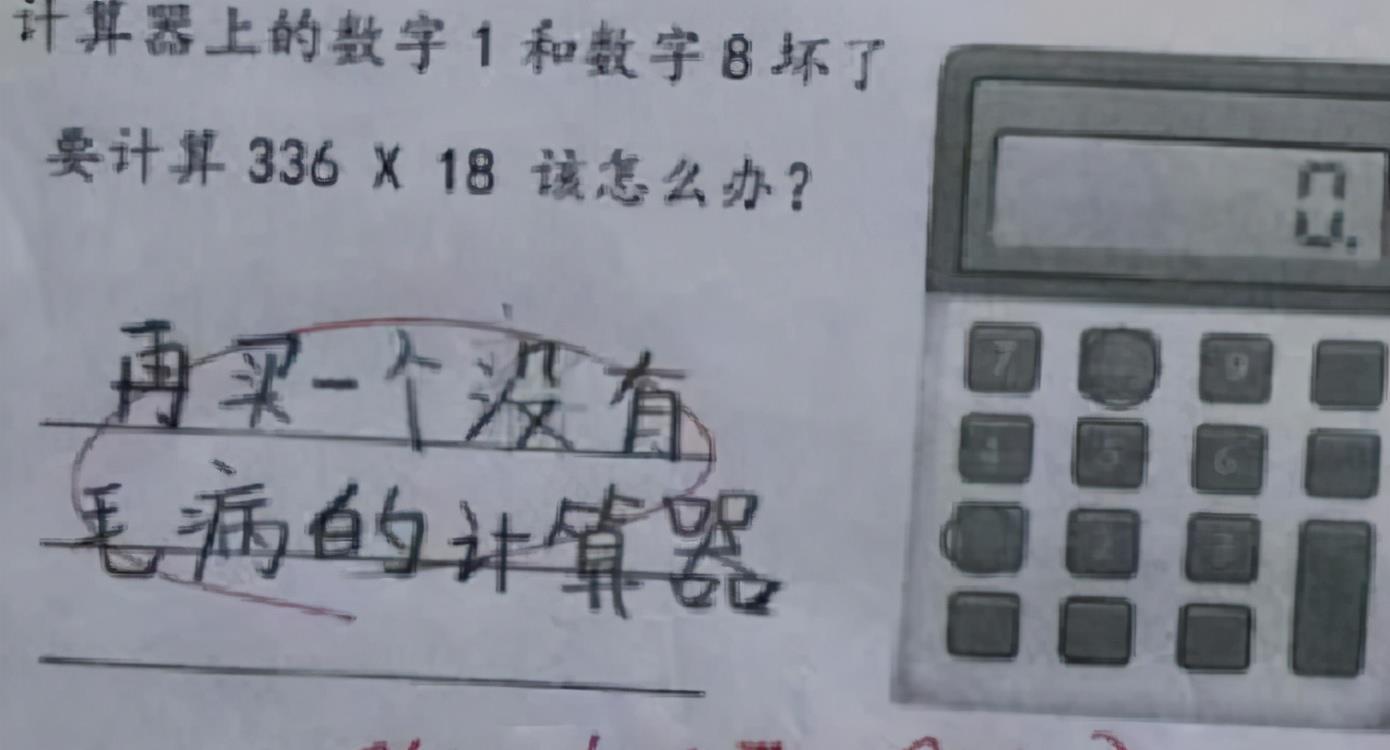 计算器上的数字1和数字8坏了
要计算336 X 18 该怎么办?
再买一个没有
毛病的计算器
0.
7 9
4 5 6
2 3